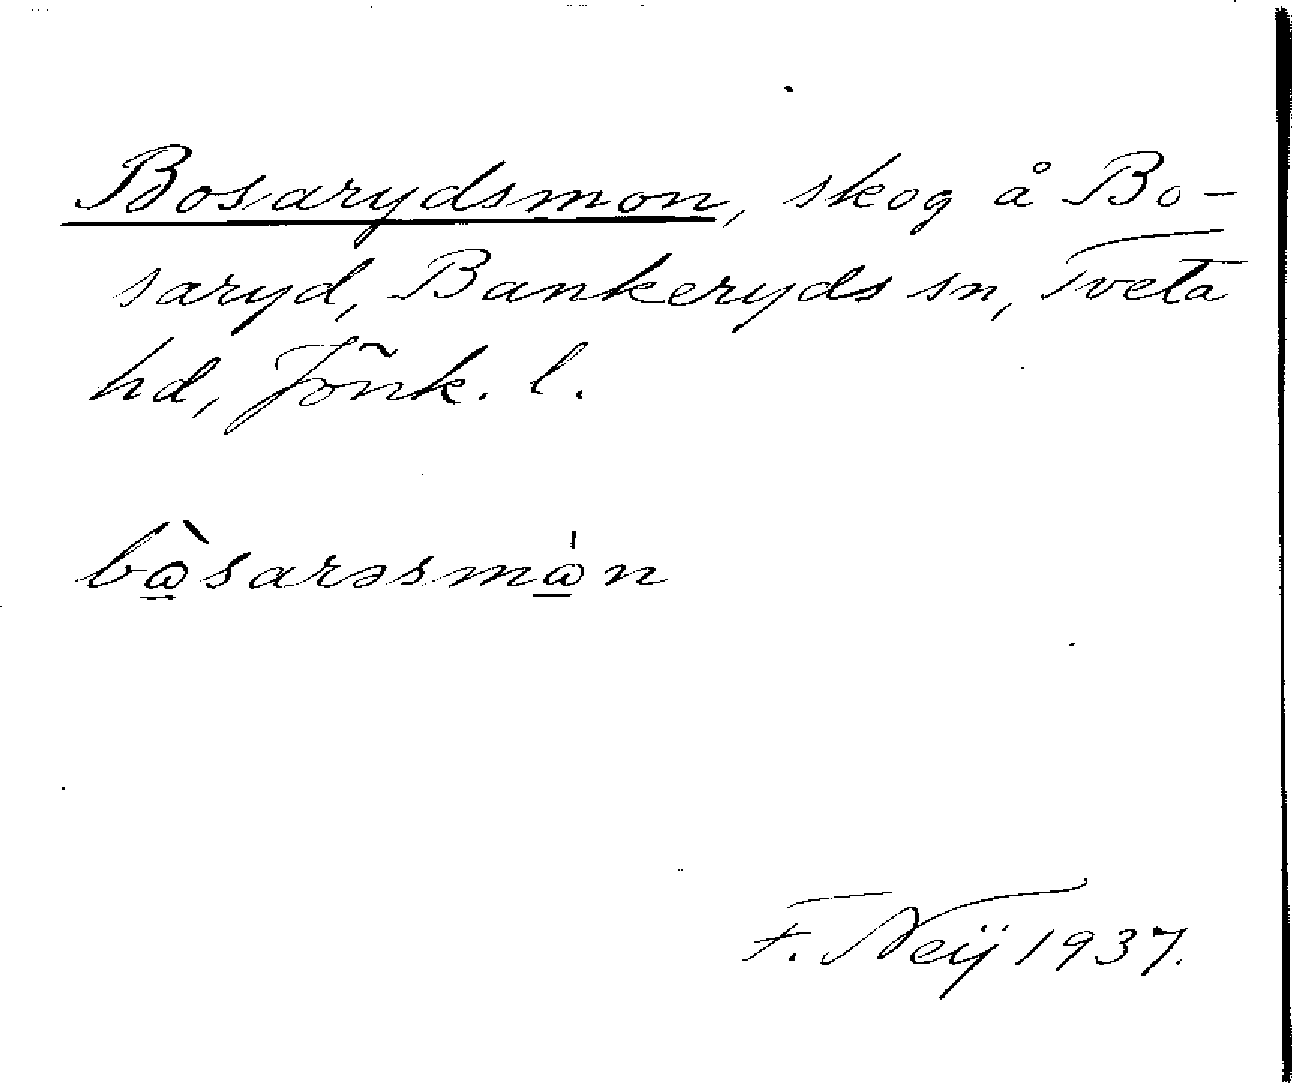 Bosarydsmon, skog å Bo-
saryd, Bankeryds sn, Tveta
hd, Jönk. l.
bὼ̱sarəsmω̱̍n
F. Neÿ 1937.